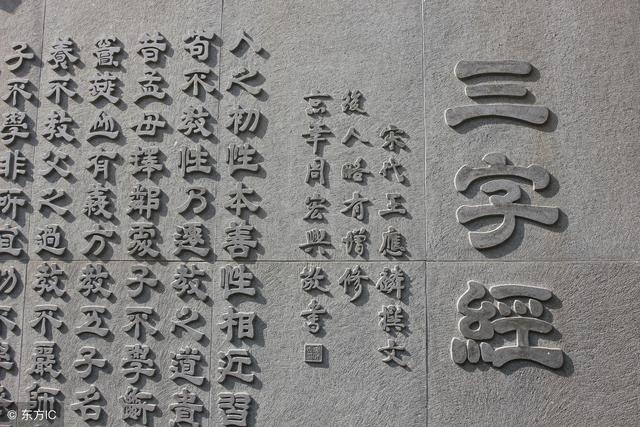 三字經
宋代王應麟撰文
後人略有增修
年周宏興敬書
人之初性本善性相近習
苟不教性乃遷教之道貴
昔孟母擇鄰處子不學斷
竇燕山有義方教五子名
養不教父之過教不嚴師
子不學非所宜幼不
© 东方IC